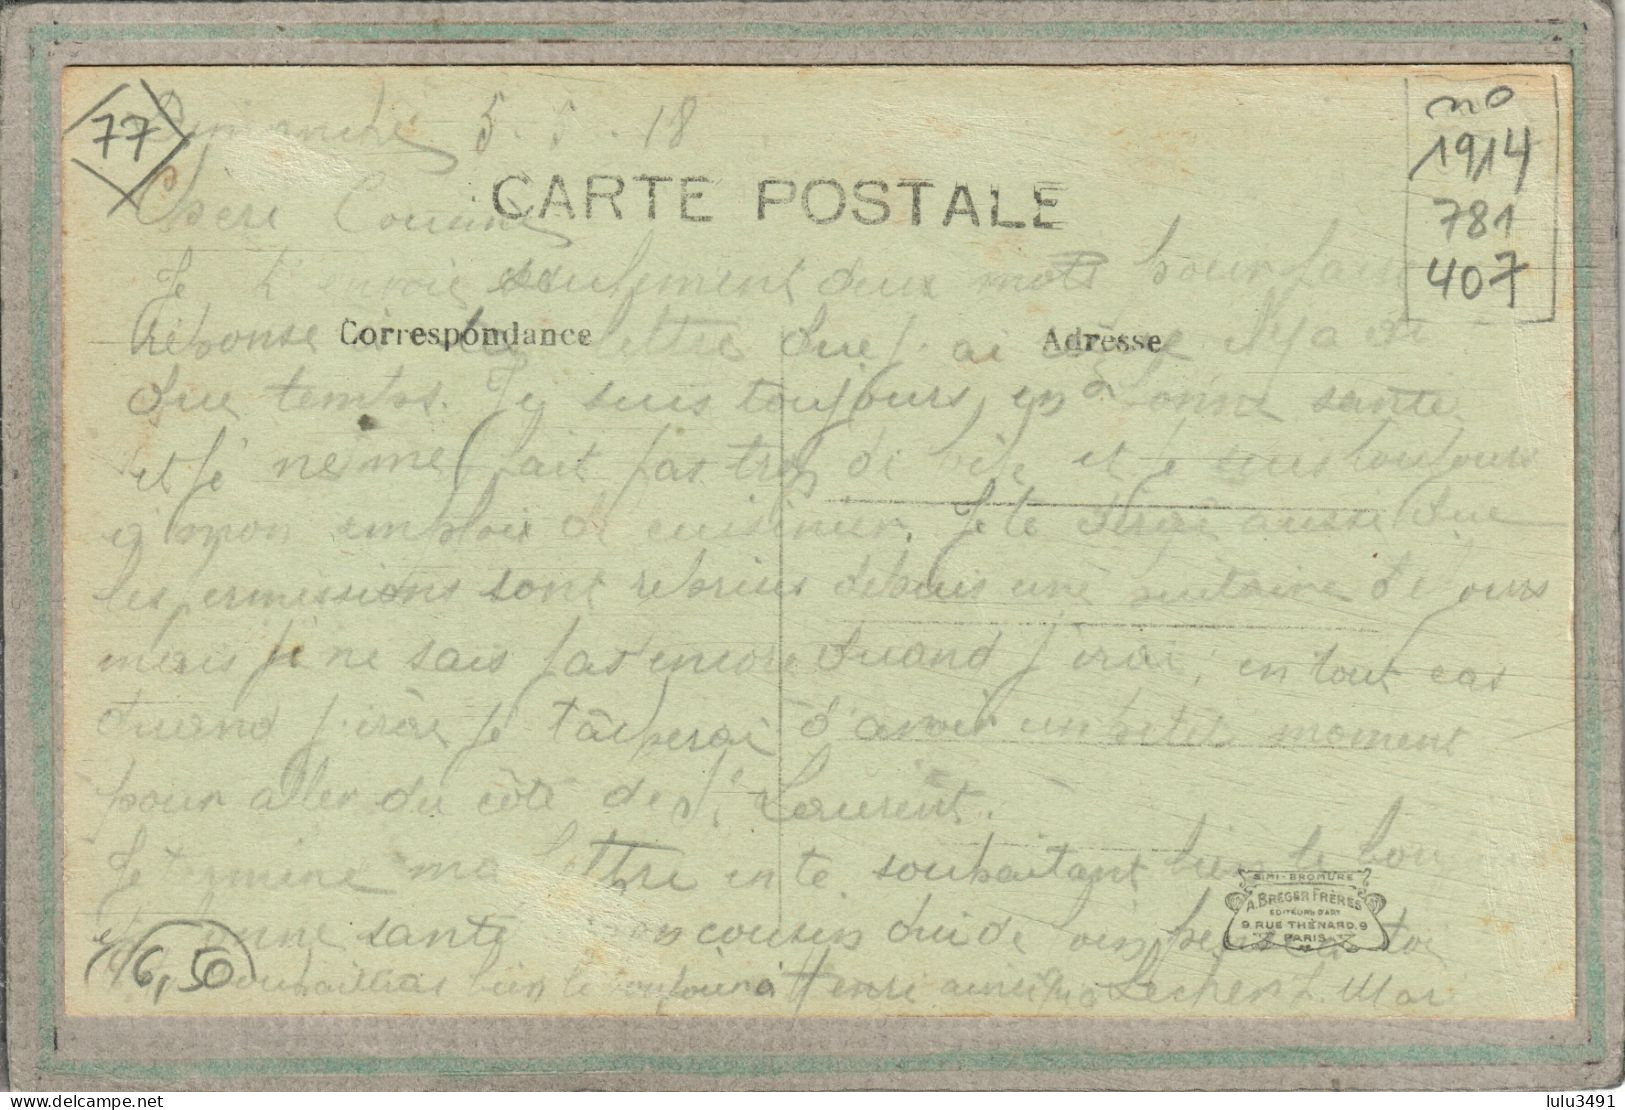 77
Dimanche 5 . 18
no
1914
781
407
CARTE POSTALE
Chère Cousine
Je t'envoie seulement deux mots pour faire
réponse à ta lettre que j'ai
Correspondance
Adresse
que temps. J'y suis toujours en bonne santé
et je ne me fait pas trop de bile et je suis toujours
a mon emploi de cuisinier. Je te dirai aussi que
les permissions sont reprises depuis une huitaine de jours
mais je ne sais pas encore quand j'irai, en tout cas
quand j'irai je tâcherai d'avoir un petit moment
pour aller du côté de St Laurent.
Je termine ma lettre en te souhaitant bien le bonjour
et bonne santé Ton cousin qui de loin pense a toi
16,50
souhaittras bien le bonjour a Henri ainsi
SIMI-BROMURE
A. BREGER FRÈRES
EDITEURS D'ART
9 RUE THÉNARD, 9
PARIS
77
lulu3491